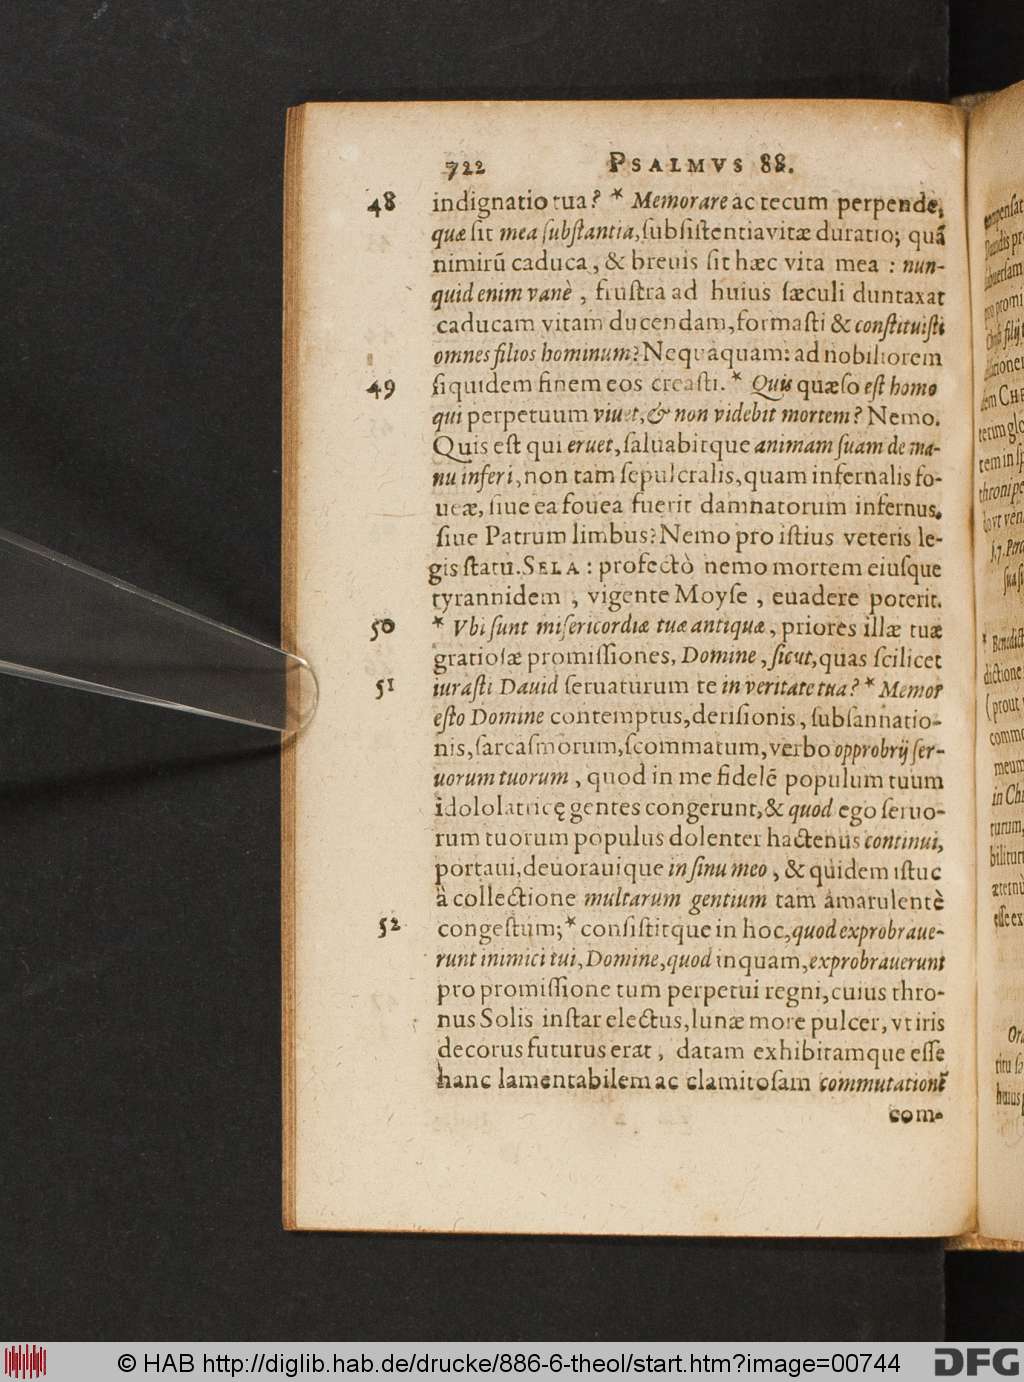 722 PSALMVS 88.
48 indignatio tua? * Memorare ac tecum perpende,
quæ sit mea substantia, subsistentia vitæ duratio; quã
nimirũ caduca, & breuis sit hæc vita mea : nun-
quid enim vanè , frustra ad huius sæculi duntaxat
caducam vitam ducendam, formasti & constituisti
omnes filios hominum? Nequaquam: ad nobiliorem
49 siquidem finem eos creasti. * Quis quæso est homo
qui perpetuum viuet, & non videbit mortem? Nemo.
Quis est qui eruet, saluabitque animam suam de ma-
nu inferi, non tam sepulcralis, quam infernalis fo-
ueæ, siue ea fouea fuerit damnatorum infernus,
siue Patrum limbus? Nemo pro istius veteris le-
gis statu. SELA : profectò nemo mortem eiusque
tyrannidem , vigente Moyse , euadere poterit.
50 * Vbi sunt misericordiæ tuæ antiquæ , priores illæ tuæ
gratiosæ promissiones, Domine , sicut, quas scilicet
51 iurasti Dauid seruaturum te in veritate tua? * Memor
esto Domine contemptus, derisionis, subsannatio-
nis, sarcasmorum, scommatum, verbo opprobrij ser-
uorum tuorum , quod in me fidelẽ populum tuum
idololatricę gentes congerunt, & quod ego seruo-
rum tuorum populus dolenter hactenus continui,
portaui, deuorauique in sinu meo , & quidem istuc
à collectione multarum gentium tam amarulentè
52 congestum; * consistitque in hoc, quod exprobraue-
runt inimici tui, Domine, quod inquam, exprobrauerunt
pro promissione tum perpetui regni, cuius thro-
nus Solis instar electus, lunæ more pulcer, vt iris
decorus futurus erat , datam exhibitamque esse
hanc lamentabilem ac clamitosam commutationẽ
com-
© HAB http://diglib.hab.de/drucke/886-6-theol/start.htm?image=00744
DFG